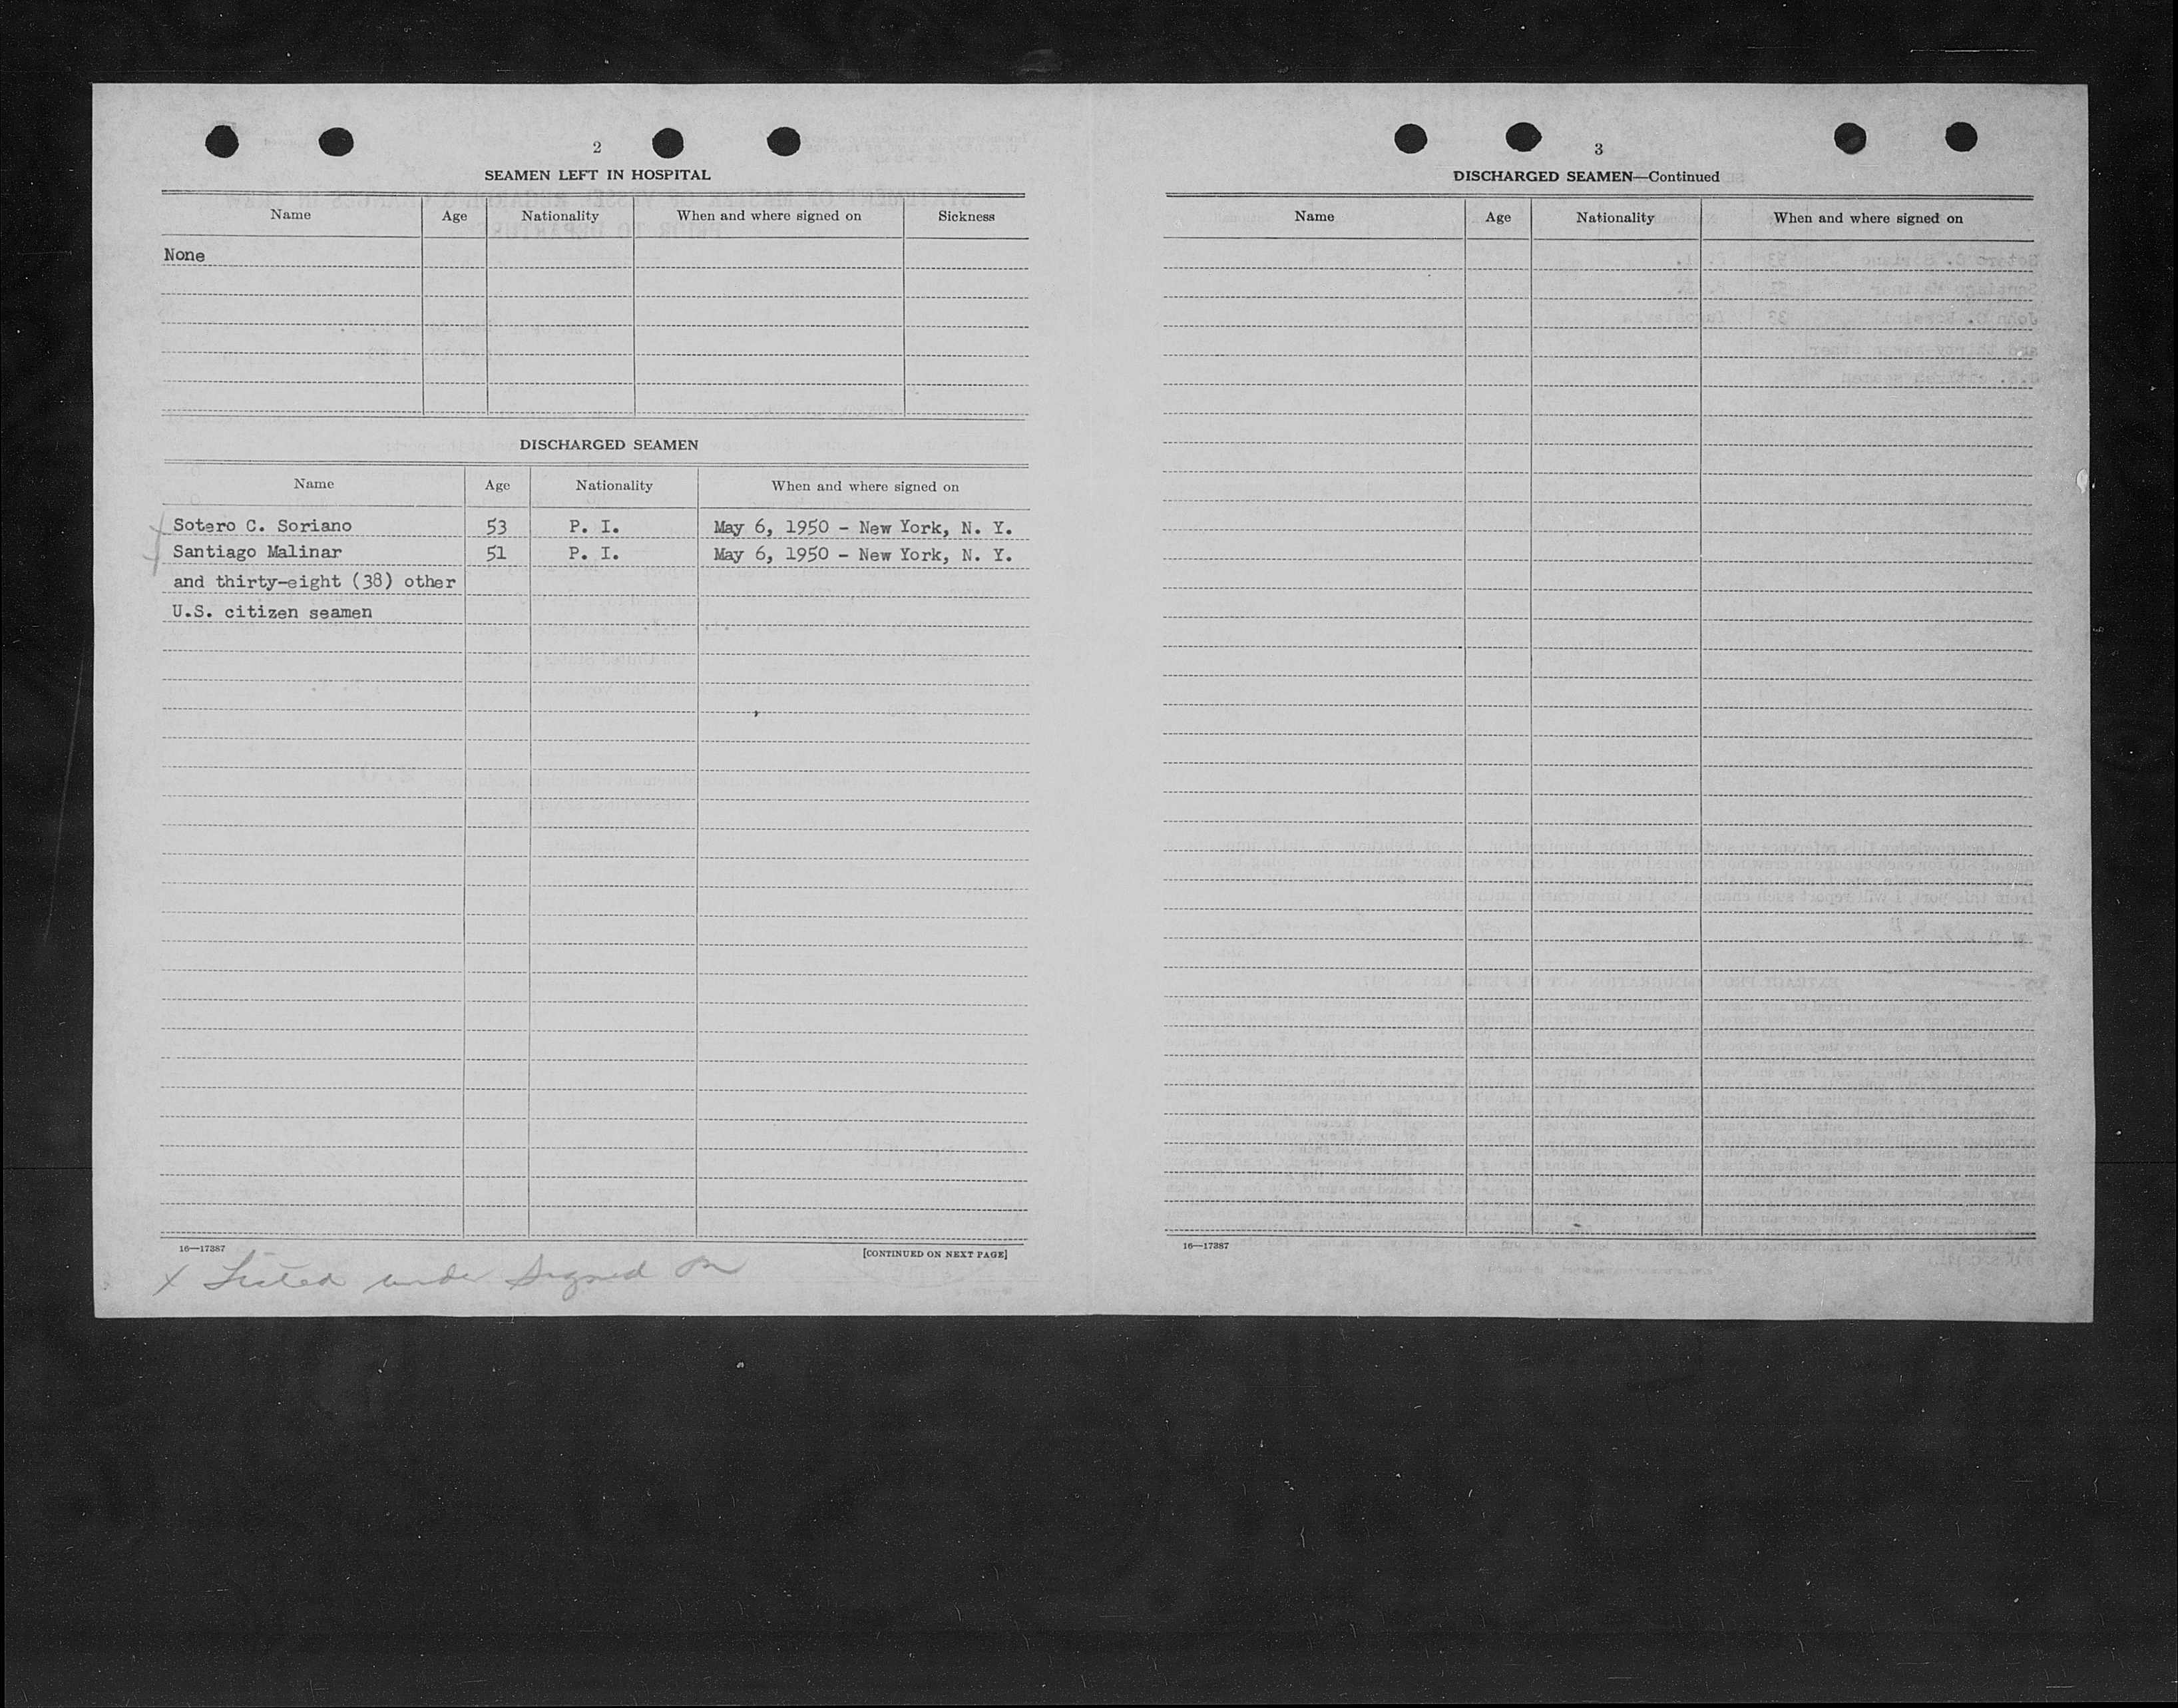 2
SEAMEN LEFT IN HOSPITAL
Name Age Nationality When and where signed on Sickness
None
DISCHARGED SEAMEN
Name Age Nationality When and where signed on
Sotero C. Soriano 53 P. I. May 6, 1950 - New York, N. Y.
Santiago Malinar 51 P. I. May 6, 1950 - New York, N. Y.
and thirty-eight (38) other
U.S. citizen seamen
16—17387
[CONTINUED ON NEXT PAGE]
x Listed under Signed on
3
DISCHARGED SEAMEN—Continued
Name Age Nationality When and where signed on
16—17387